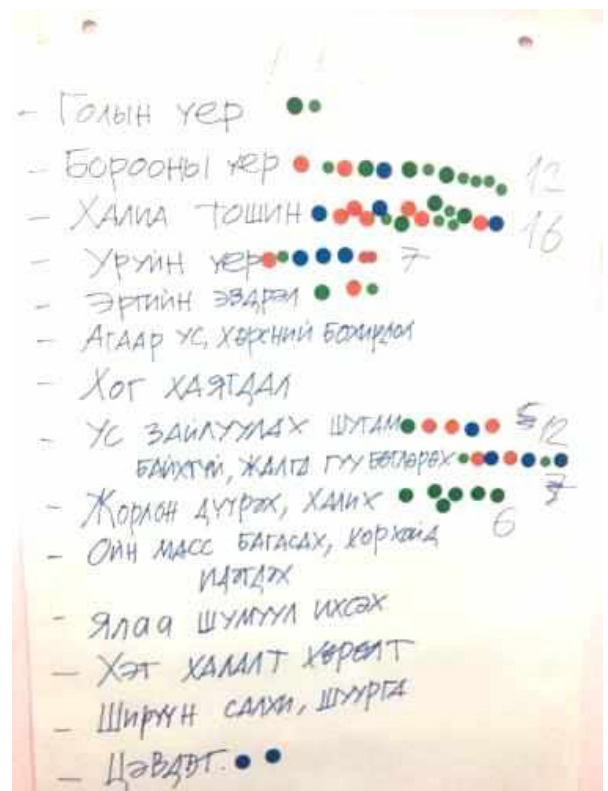 - Голын үер
- Борооны үер 12
- Халиа тошин 16
- Уруйн үер 7
- Эргийн эвдрэл
- Агаар ус, хөрсний бохирдол
- Хог хаягдал
- Ус зайлуулах шугам 12
байхгүй, жалга гуу бөглөрөх
- Жорлон дүүрэх, халих
6
- Ойн масс багасах, хорхойд
идэгдэх
- Ялаа шумуул ихсэх
- Хэт халалт хөрөлт
- Ширүүн салхи, шуурга
- Цэвдэг.